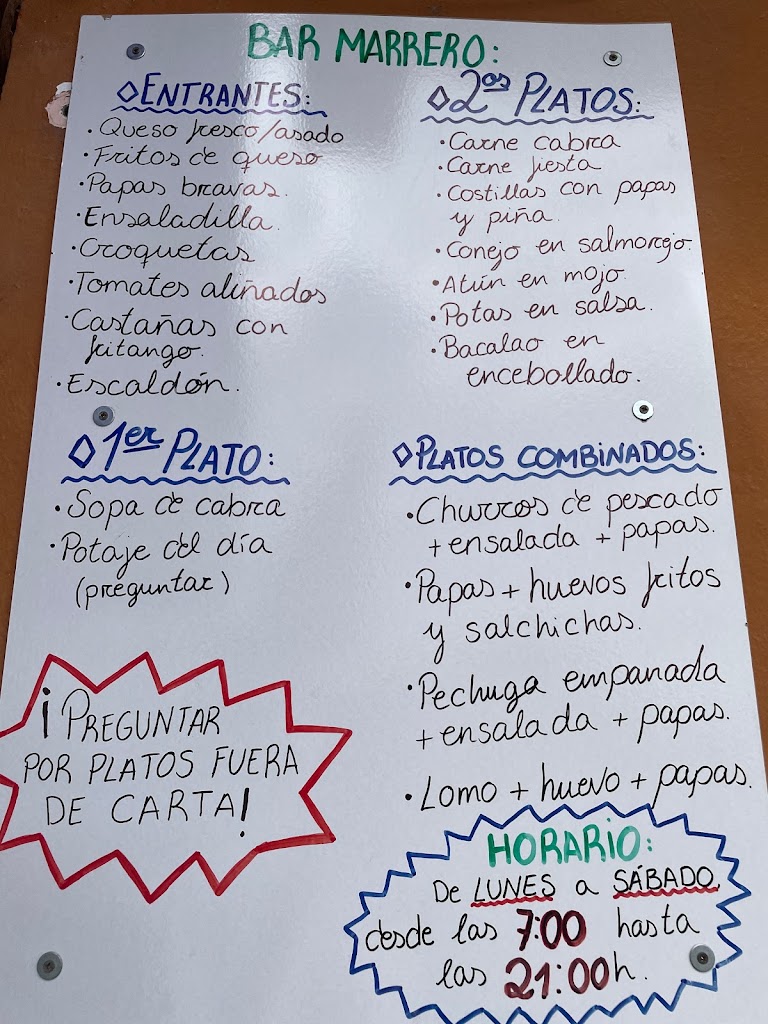 BAR MARRERO:
◊ENTRANTES:
· Queso fresco/asado
· Fritos de queso
· Papas bravas.
· Ensaladilla.
· Croquetas
· Tomates aliñados
· Castañas con
fritango.
· Escaldón.
◊1er PLATO:
· Sopa de cabra
· Potaje del día
(preguntar)
¡PREGUNTAR
POR PLATOS FUERA
DE CARTA!
◊2os PLATOS:
· Carne cabra
· Carne fiesta
· Costillas con papas
y piña.
· Conejo en salmorejo.
· Atún en mojo
· Potas en salsa.
· Bacalao en
encebollado.
◊PLATOS COMBINADOS:
· Churros de pescado
+ ensalada + papas.
· Papas + huevos fritos
y salchichas.
· Pechuga empanada
+ ensalada + papas.
· Lomo + huevo + papas.
HORARIO:
De LUNES a SÁBADO,
desde las 7:00 hasta
las 21:00h.